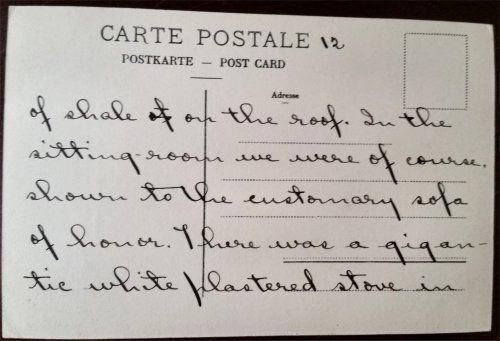 CARTE POSTALE 12
POSTKARTE — POST CARD
Adresse
of shale of on the roof. In the
sitting-room we were of course,
shown to the customary sofa
of honor. There was a gigan-
tic white plastered stove in